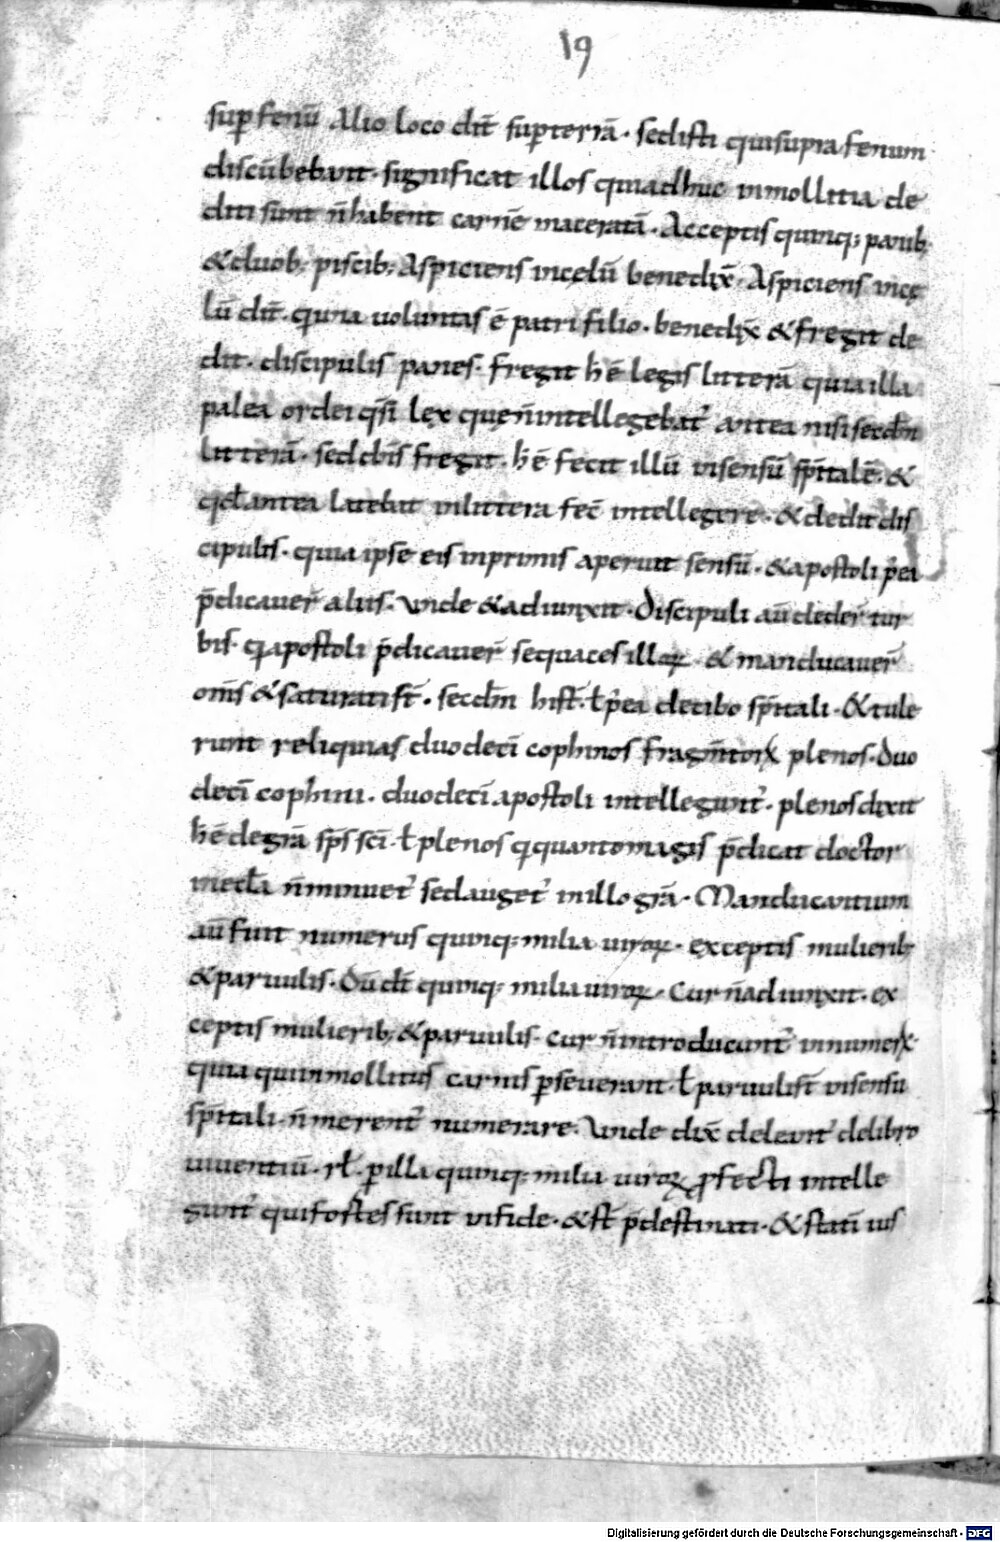 19
sup fenū Alio loco dic̄ sup terrā · sed isti qui supra fenum
discūbebant · significat illos qui adhuc in mollitia de
diti sunt n̄ habent carnē maceratā · Acceptis quinq; panib;
& duob; piscib; Aspiciens in cęlū benedix̄ · Aspiciens in cę
lū dic̄ · quia uoluntas ē patri filio · benedix̄ & fregit de
dit · discipulis panes · fregit h̄ ē legis litterā quia illa
palea ordei q̄si lex que n̄ intellegebat̄ antea nisi secdm̄
litterā · sed d̄ns fregit · h̄ ē fecit illū in sensū sp̄italē · &
qd̄ antea latebat in littera fec̄ intellegere · & dedit dis
cipulis · quia ipse eis in primis aperuit sensū · & apostoli p̄ ea
p̄dicauer̄ aliis · Unde & adiunxit · Discipuli aū deder̄ tur
bis · q̄ apostoli p̄dicauer̄ sequaces illoꝝ · & manducauer̄
om̄s & saturati st̄ · secdm̄ hist̄ · ł p̄ ea de cibo sp̄itali · & tule
runt reliquias duodecī cophinos fragm̄toꝝ plenos · Duo
decī cophini · duodecī apostoli intellegunt̄ · plenos dixit
h̄ ē de grā sp̄s sc̄i · ł plenos q̄ quanto magis p̄dicat doctor
in ecl̄a n̄ minuet̄ sed auget̄ in illo grā · Manducantium
aū fuit numerus quinq; milia uiroꝝ · exceptis mulierib;
& paruulis · Dū dic̄ quinq; milia uiroꝝ · Cur n̄ adiunxit · ex
ceptis mulierib; & paruulis · cur n̄ introducunt̄ in numeꝝ ·
quia qui in mollitiis carnis p̄seuerant · ł paruuli st̄ in sensu
sp̄itali · n̄ merent̄ numerare · Unde dix̄ deleant̄ de libro
uiuentiū · rł · p̄ illa quinq; milia uiroꝝ p̄fecti intelle
gunt̄ qui fortes sunt in fide · & st̄ p̄destinati · & statī ius
Digitalisierung gefördert durch die Deutsche Forschungsgemeinschaft - DFG